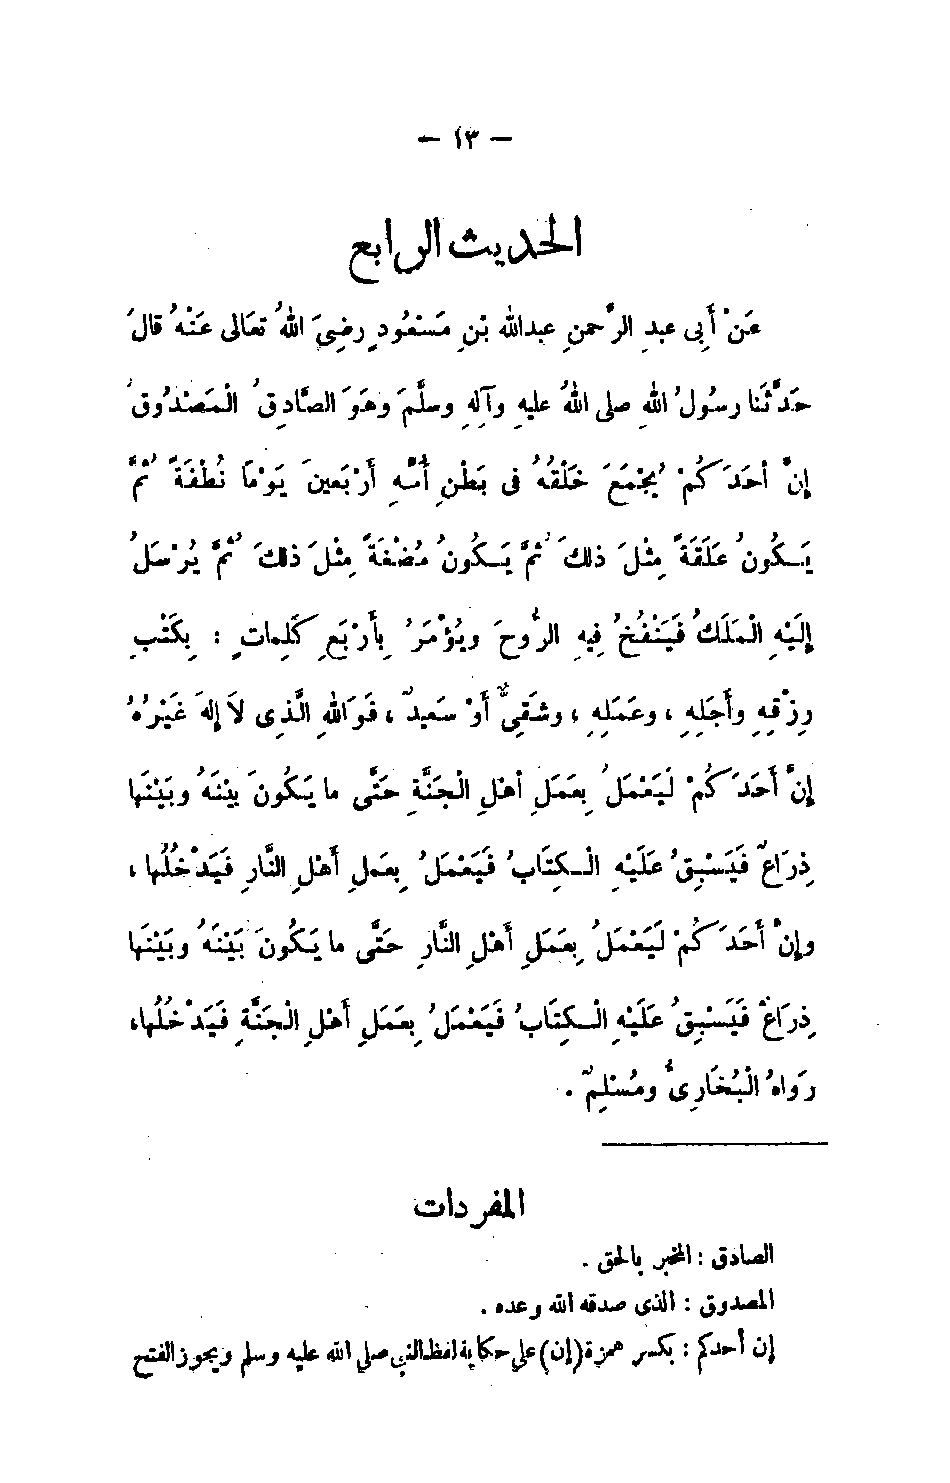 — ١٣ —
الحديث الرابع
عَنْ أَبِى عبدِ الرَّحمنِ عبدِاللهِ بْنِ مَسْعُودٍ رضِىَ اللهُ تعَالى عَنْهُ قالَ
حَدَّثَنا رسُولُ اللهِ صلى اللهُ عليهِ وآلِهِ وسلَّمَ وهْوَ الصَّادِقُ الْمَصْدُوقُ
إنَّ أحَدَكُمْ يُجْمَعَ خَلْقُهُ فى بَطْنِ أُمِّهِ أرْبَعينَ يَوْمًا نُطْفَةً ثُمَّ
يَكُونُ عَلَقَةً مِثْلَ ذلكَ ثُمَّ يَكُونُ مُضْغَةً مِثْلَ ذلكَ ثُمَّ يُرْسَلُ
إلَيْهِ الْمَلَكُ فَيَنْفُخُ فِيهِ الرُّوحَ ويُؤْمَرُ بِأَرْبَعِ كَلِماتٍ : بِكَتْبِ
رِزْقِهِ وأَجَلِهِ ، وعَمَلِهِ ، وشَقِىٌّ أوْ سَعيدٌ ، فَوَاللهِ الَّذِى لاَ إلهَ غَيْرُهُ
إنَّ أَحَدَكُمْ لَيَعْمَلُ بِعَمَلِ أهْلِ الْجَنَّةِ حَتَّى ما يَكُونَ بيْنَهُ وبَيْنَها
ذِرَاعٌ فَيَسْبِقُ عَلَيْهِ الْكِتَابُ فَيَعْمَلُ بِعَمَلِ أَهْلِ النَّارِ فَيَدْخُلُها ،
وإنْ أَحَدَكُمْ لَيَعْمَلُ بِعَمَلِ أَهْلِ النَّارِ حَتَّى ما يَكُونَ بَيْنَهُ وبَيْنَها
ذِرَاعٌ فَيَسْبِقُ عَلَيْهِ الْكِتَابُ فَيَعْمَلُ بِعَمَلِ أَهْلِ الْجَنَّةِ فَيَدْخُلُها،
رَواهُ الْبُخَارِىُّ ومُسْلِمٌ .
المفردات
الصادق : المخبر بالحق .
المصدوق : الذى صدقه الله وعده .
إن أحدكم : بكسر همزة (إن) على حكاية لفظ النبى صلى الله عليه وسلم ويجوز الفتح